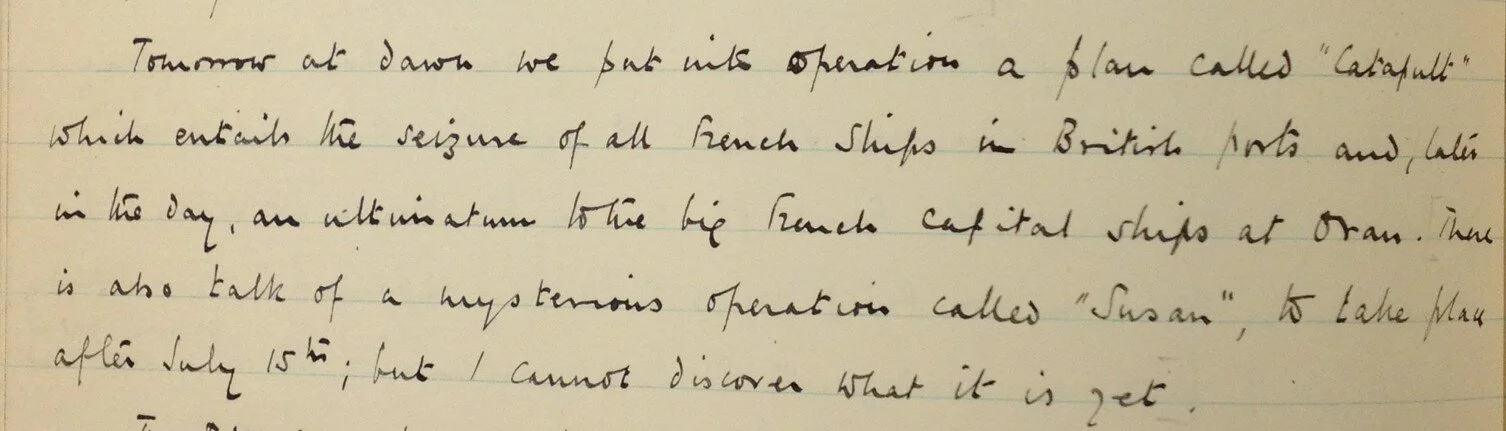 Tomorrow at dawn we put into operation a plan called "Catapult"
which entails the seizure of all French ships in British ports and, later
in the day, an ultimatum to the big French capital ships at Oran. There
is also talk of a mysterious operation called "Susan", to take place
after July 15th; but I cannot discover what it is yet.